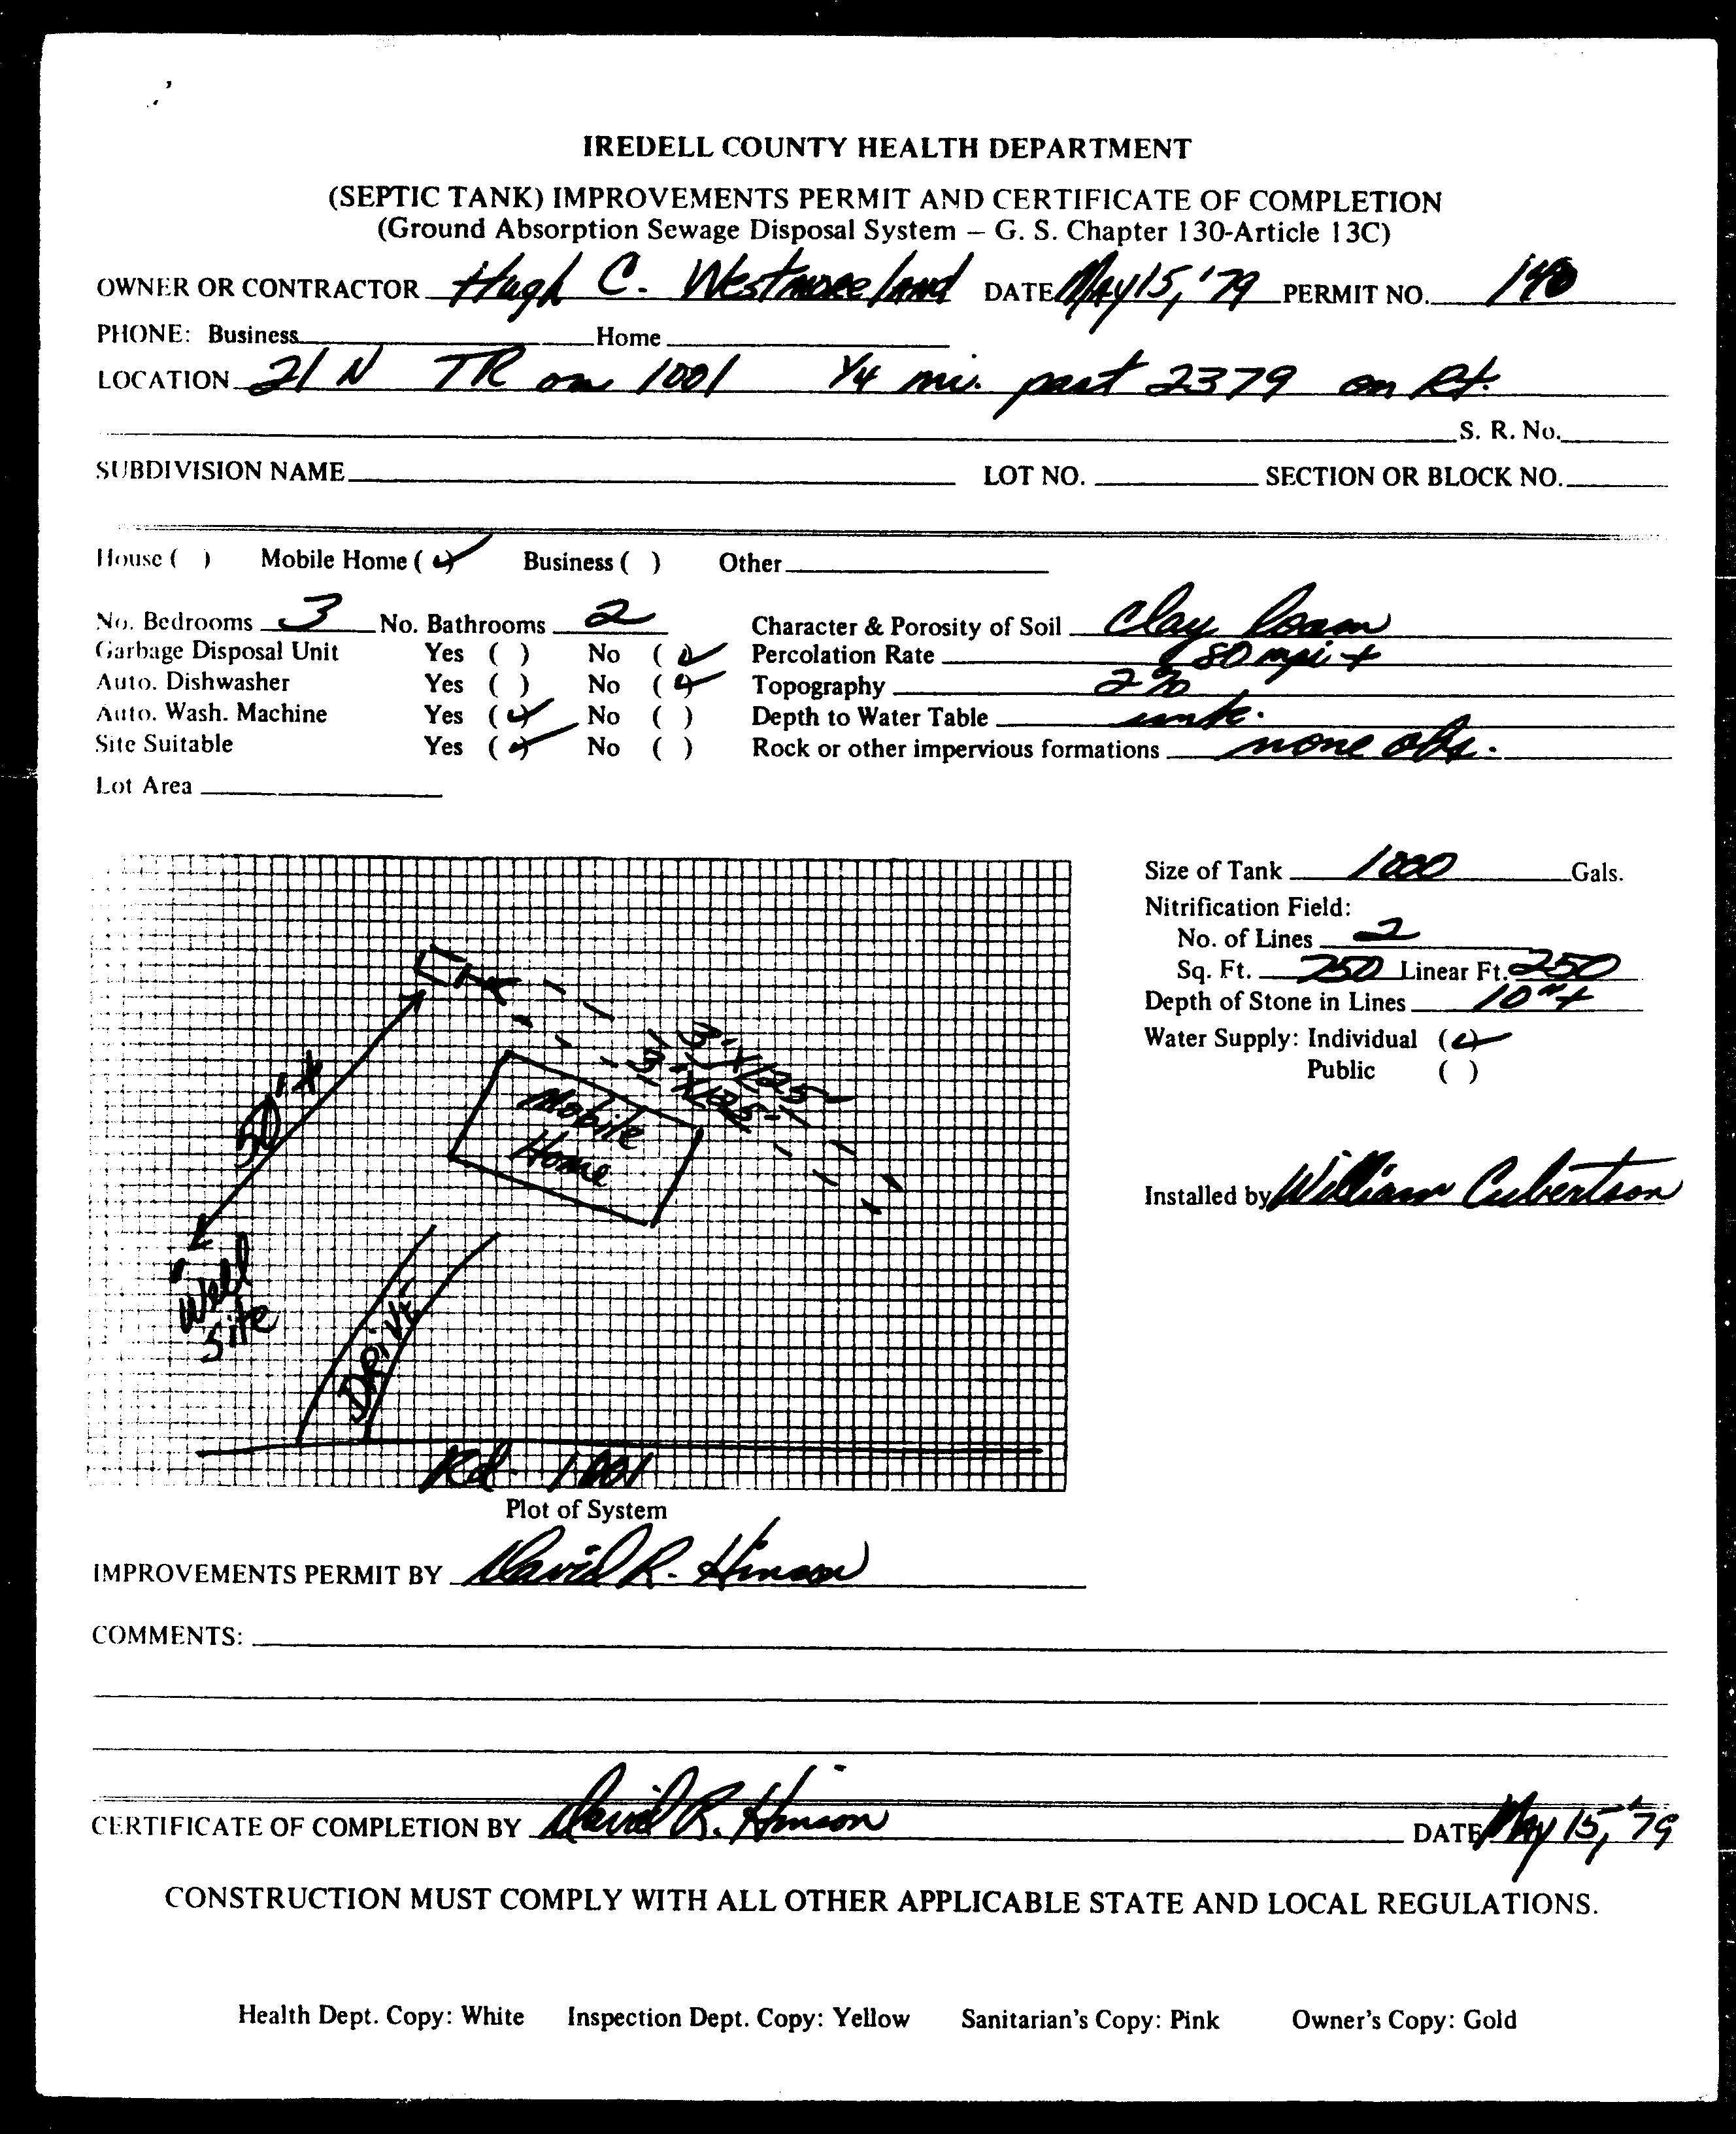 IREDELL COUNTY HEALTH DEPARTMENT
(SEPTIC TANK) IMPROVEMENTS PERMIT AND CERTIFICATE OF COMPLETION
(Ground Absorption Sewage Disposal System – G. S. Chapter 130-Article 13C)
OWNER OR CONTRACTOR Hugh C. Westmoreland DATE May 15, '79 PERMIT NO.
PHONE: Business Home
LOCATION 21 N TR on 1001 1/4 mi. past 2379 on Rt.
S. R. No.
SUBDIVISION NAME LOT NO. SECTION OR BLOCK NO.
House ( ) Mobile Home (✓) Business ( ) Other
No. Bedrooms 3 No. Bathrooms 2 Character & Porosity of Soil Clay loam
Garbage Disposal Unit Yes ( ) No (✓) Percolation Rate 80 mpi +
Auto. Dishwasher Yes ( ) No (✓) Topography 2%
Auto. Wash. Machine Yes (✓) No ( ) Depth to Water Table unk.
Site Suitable Yes (✓) No ( ) Rock or other impervious formations none obs.
Lot Area
Size of Tank 1000 Gals.
Nitrification Field:
No. of Lines 2
Sq. Ft. 750 Linear Ft. 250
Depth of Stone in Lines 10"+
Water Supply: Individual (✓)
Public ( )
Installed by William Culbertson
50'+
3'x125'
3'x125'
Mobile
Home
Well
Site
DRIVE
Rd. 1001
Plot of System
IMPROVEMENTS PERMIT BY David R. Hinson
COMMENTS:
CERTIFICATE OF COMPLETION BY David R. Hinson DATE May 15, '79
CONSTRUCTION MUST COMPLY WITH ALL OTHER APPLICABLE STATE AND LOCAL REGULATIONS.
Health Dept. Copy: White Inspection Dept. Copy: Yellow Sanitarian's Copy: Pink Owner's Copy: Gold